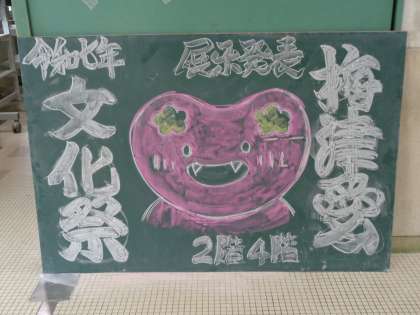 令和七年
文化祭
展示発表
2階4階